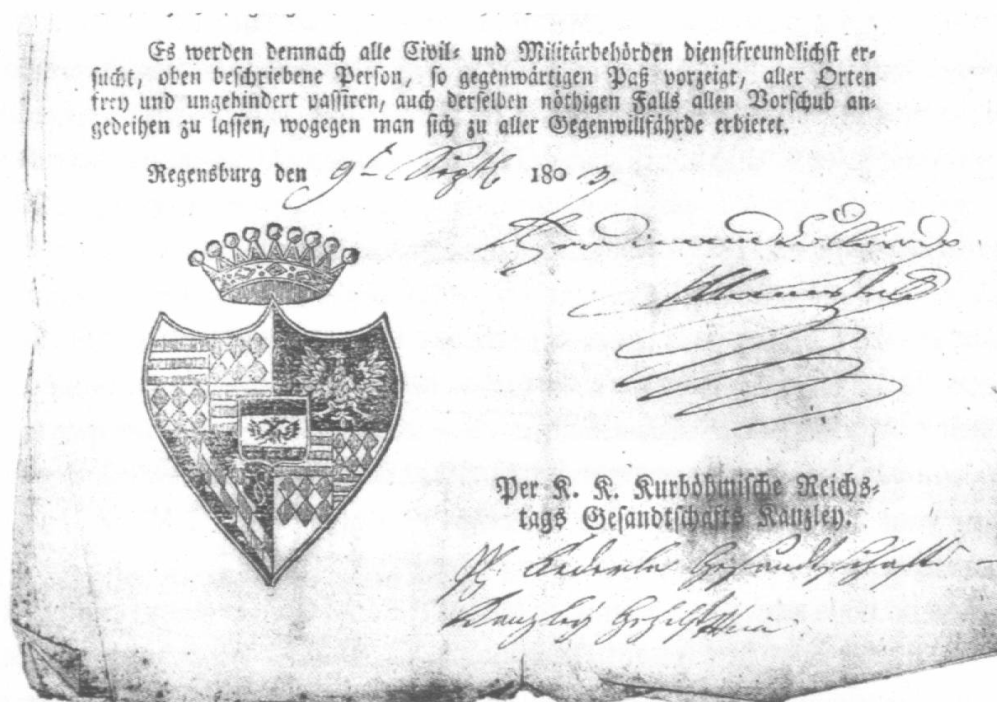 Es werden demnach alle Civil- und Militärbehörden dienstfreundlichst er-
sucht, oben beschriebene Person, so gegenwärtigen Paß vorzeigt, aller Orten
frey und ungehindert passiren, auch derselben nöthigen Falls allen Vorschub an-
gedeihen zu lassen, wogegen man sich zu aller Gegenwillfährde erbietet.
Regensburg den 9t Septb 1803
Ferdinand
Per K. K. Kurböhmische Reichs-
tags Gesandtschafts Kanzley.
Gesandtschafts
Kanzley